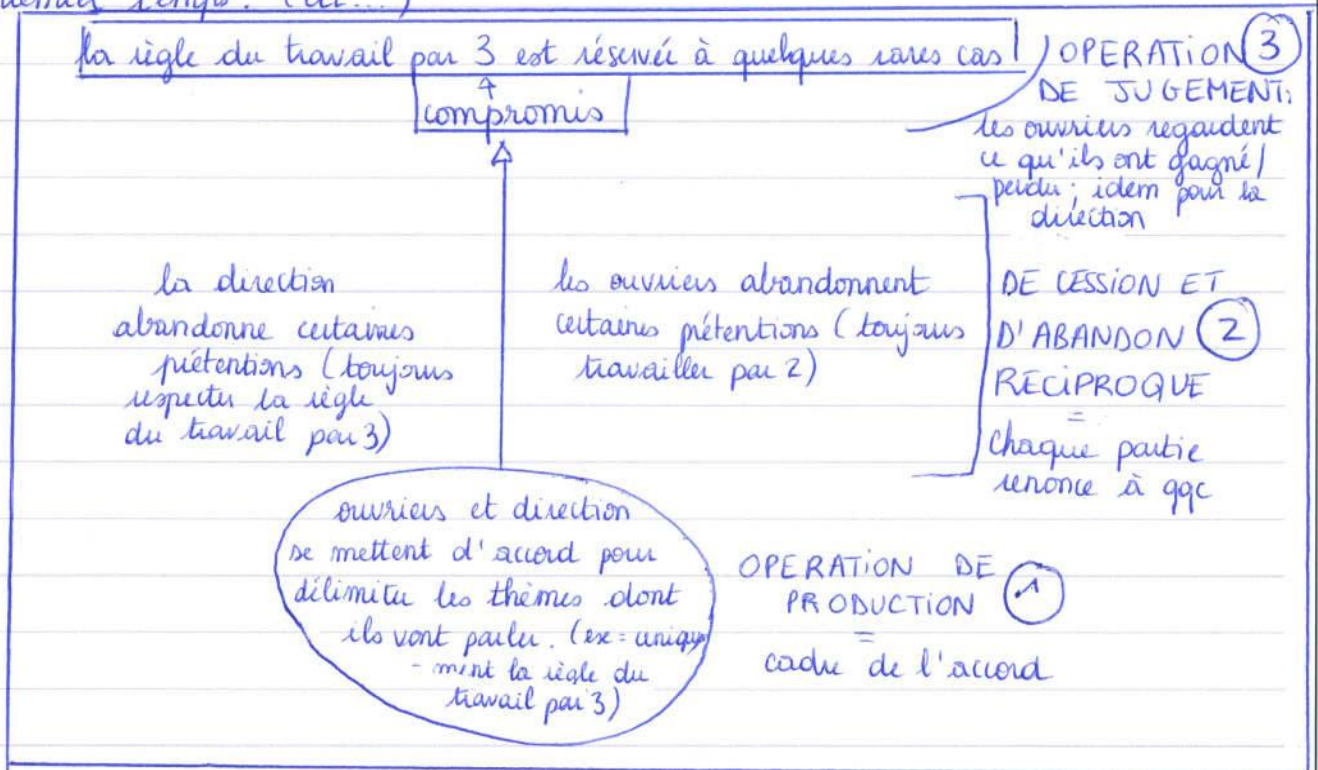 temps. (cu...)
la règle du travail par 3 est réservée à quelques rares cas
compromis
OPERATION 3
DE JUGEMENT:
les ouvriers regardent
ce qu'ils ont gagné/
perdu; idem pour la
direction
la direction
abandonne certaines
prétentions (toujours
respecter la règle
du travail par 3)
les ouvriers abandonnent
certaines prétentions (toujours
travailler par 2)
DE CESSION ET
D'ABANDON 2
RECIPROQUE
=
chaque partie
renonce à qqc
ouvriers et direction
se mettent d'accord pour
délimiter les thèmes dont
ils vont parler. (ex = unique
- ment la règle du
travail par 3)
OPERATION DE
PRODUCTION 1
=
cadre de l'accord